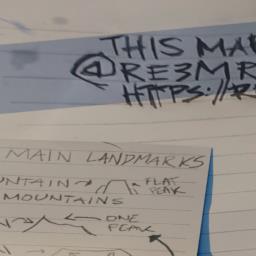 THIS MA
@RE3MR
HTTPS://R
MAIN LANDMARKS
NTAIN → FLAT PEAK
MOUNTAINS
← ONE PEAK